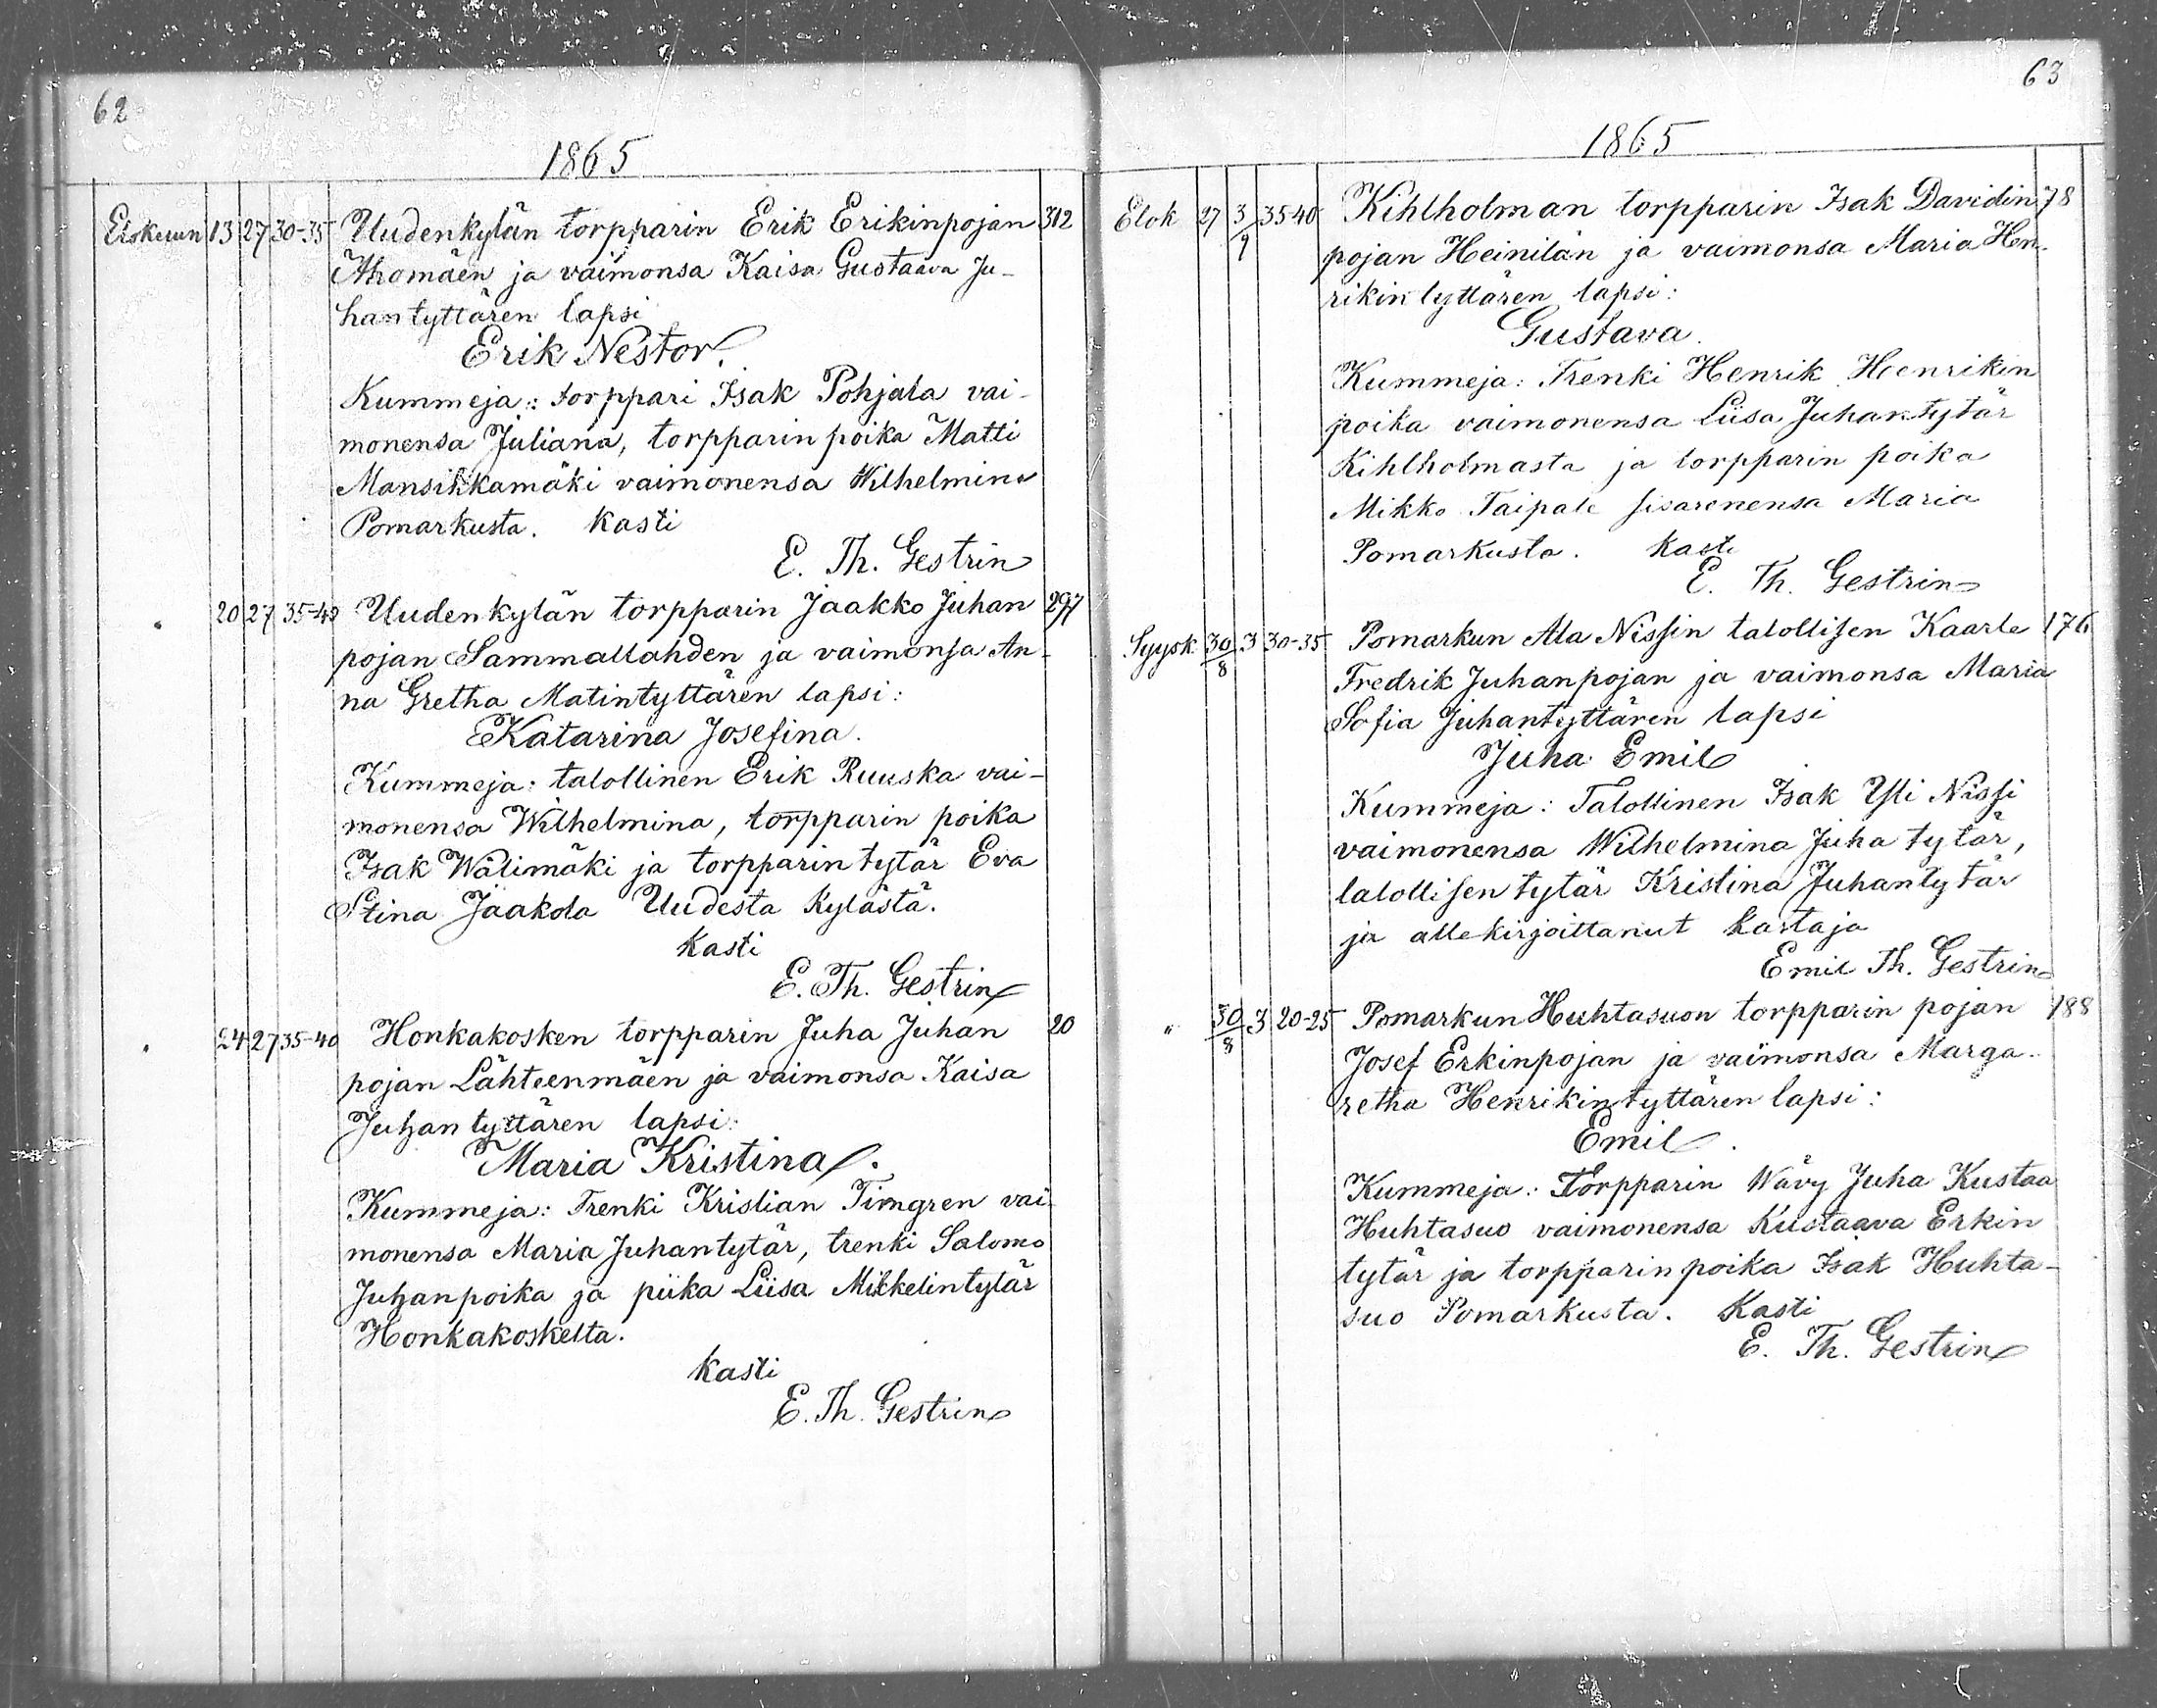 62
1865
Elokuun 13 27 30-35 Uudenkylän torpparin Erik Erikinpojan 312
Ahomäen ja vaimonsa Kaisa Gustaava Ju-
hantyttären lapsi
Erik Nestor.
Kummeja: torppari Isak Pohjala vai-
monensa Juliana, torpparin poika Matti
Mansikkamäki vaimonensa Wilhelmina
Pomarkusta. kasti
E. Th. Gestrin
" 20 27 35-40 Uudenkylän torpparin Jaakko Juhan 297
pojan Sammallahden ja vaimonsa An-
na Gretha Matintyttären lapsi:
Katarina Josefina.
Kummeja: talollinen Erik Ruuska vai-
monensa Wilhelmina, torpparin poika
Isak Wälimäki ja torpparin tytär Eva
Stina Jaakola Uudesta kylästä.
kasti
E. Th. Gestrin
" 24 27 35-40 Honkakosken torpparin Juha Juhan 20
pojan Lähteenmäen ja vaimonsa Kaisa
Juhan tyttären lapsi:
Maria Kristina.
Kummeja: Trenki Kristian Timgren vai-
monensa Maria Juhantytär, trenki Salomo
Juhanpoika ja piika Liisa Mikkelintytär
Honkakoskelta.
kasti
E. Th. Gestrin
63
1865
Elok 27 3/9 35-40 Kihlholman torpparin Isak Davidin 78
pojan Heinilän ja vaimonsa Maria Hen-
rikin tyttären lapsi:
Gustava.
Kummeja: Trenki Henrik Henrikin
poika vaimonensa Liisa Juhantytär
Kihlholmasta ja torpparin poika
Mikko Taipale sisarenensa Maria
Pomarkusta. kasti
E. Th. Gestrin
Syysk 30/8 3 30-35 Pomarkun Ala Nissin talollisen Kaarle 176
Fredrik Juhanpojan ja vaimonsa Maria
Sofia Juhantyttären lapsi
Juha Emil
Kummeja: Talollinen Isak Yli Nissi
vaimonensa Wilhelmina Juha tytär,
talollisen tytär Kristina Juhantytär
ja allekirjoittanut kastaja
Emil Th. Gestrin
" 30/8 3 20-25 Pomarkun Huhtasuon torpparin pojan 188
Josef Erkinpojan ja vaimonsa Marga-
retha Henrikintyttären lapsi:
Emil.
Kummeja: Torpparin Wävy Juha Kustaa
Huhtasuo vaimonensa Kustaava Erkin
tytär ja torpparin poika Isak Huhta-
suo Pomarkusta. Kasti
E. Th. Gestrin